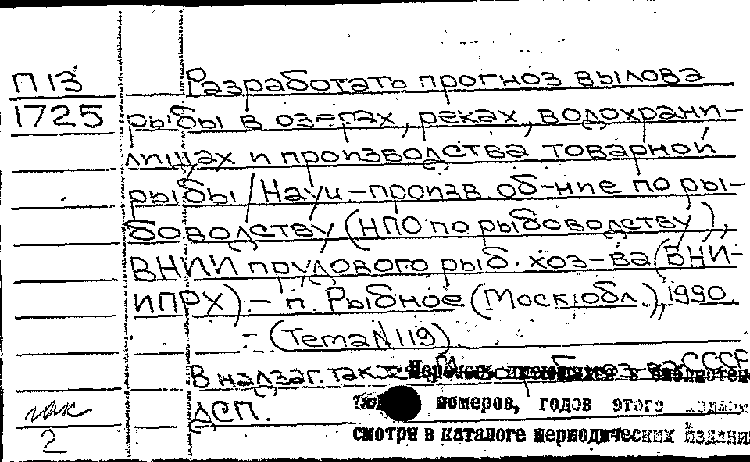 П 13
1725
Разработать прогноз вылова
рыбы в озерах, реках, водохрани-
лищах и производства товарной
рыбы / Науч.-произв. об-ние по ры-
боводству (НПО по рыбоводству),
ВНИИ прудового рыб. хоз-ва (ВНИ-
ИПРХ). – п. Рыбное (Моск. обл.), 1990.
– (Тема N 119).
В надзаг. также: СССР
ДСП.
Перечень имеющихся в библиотеке
номеров, годов этого
смотри в каталоге периодических изданий
2